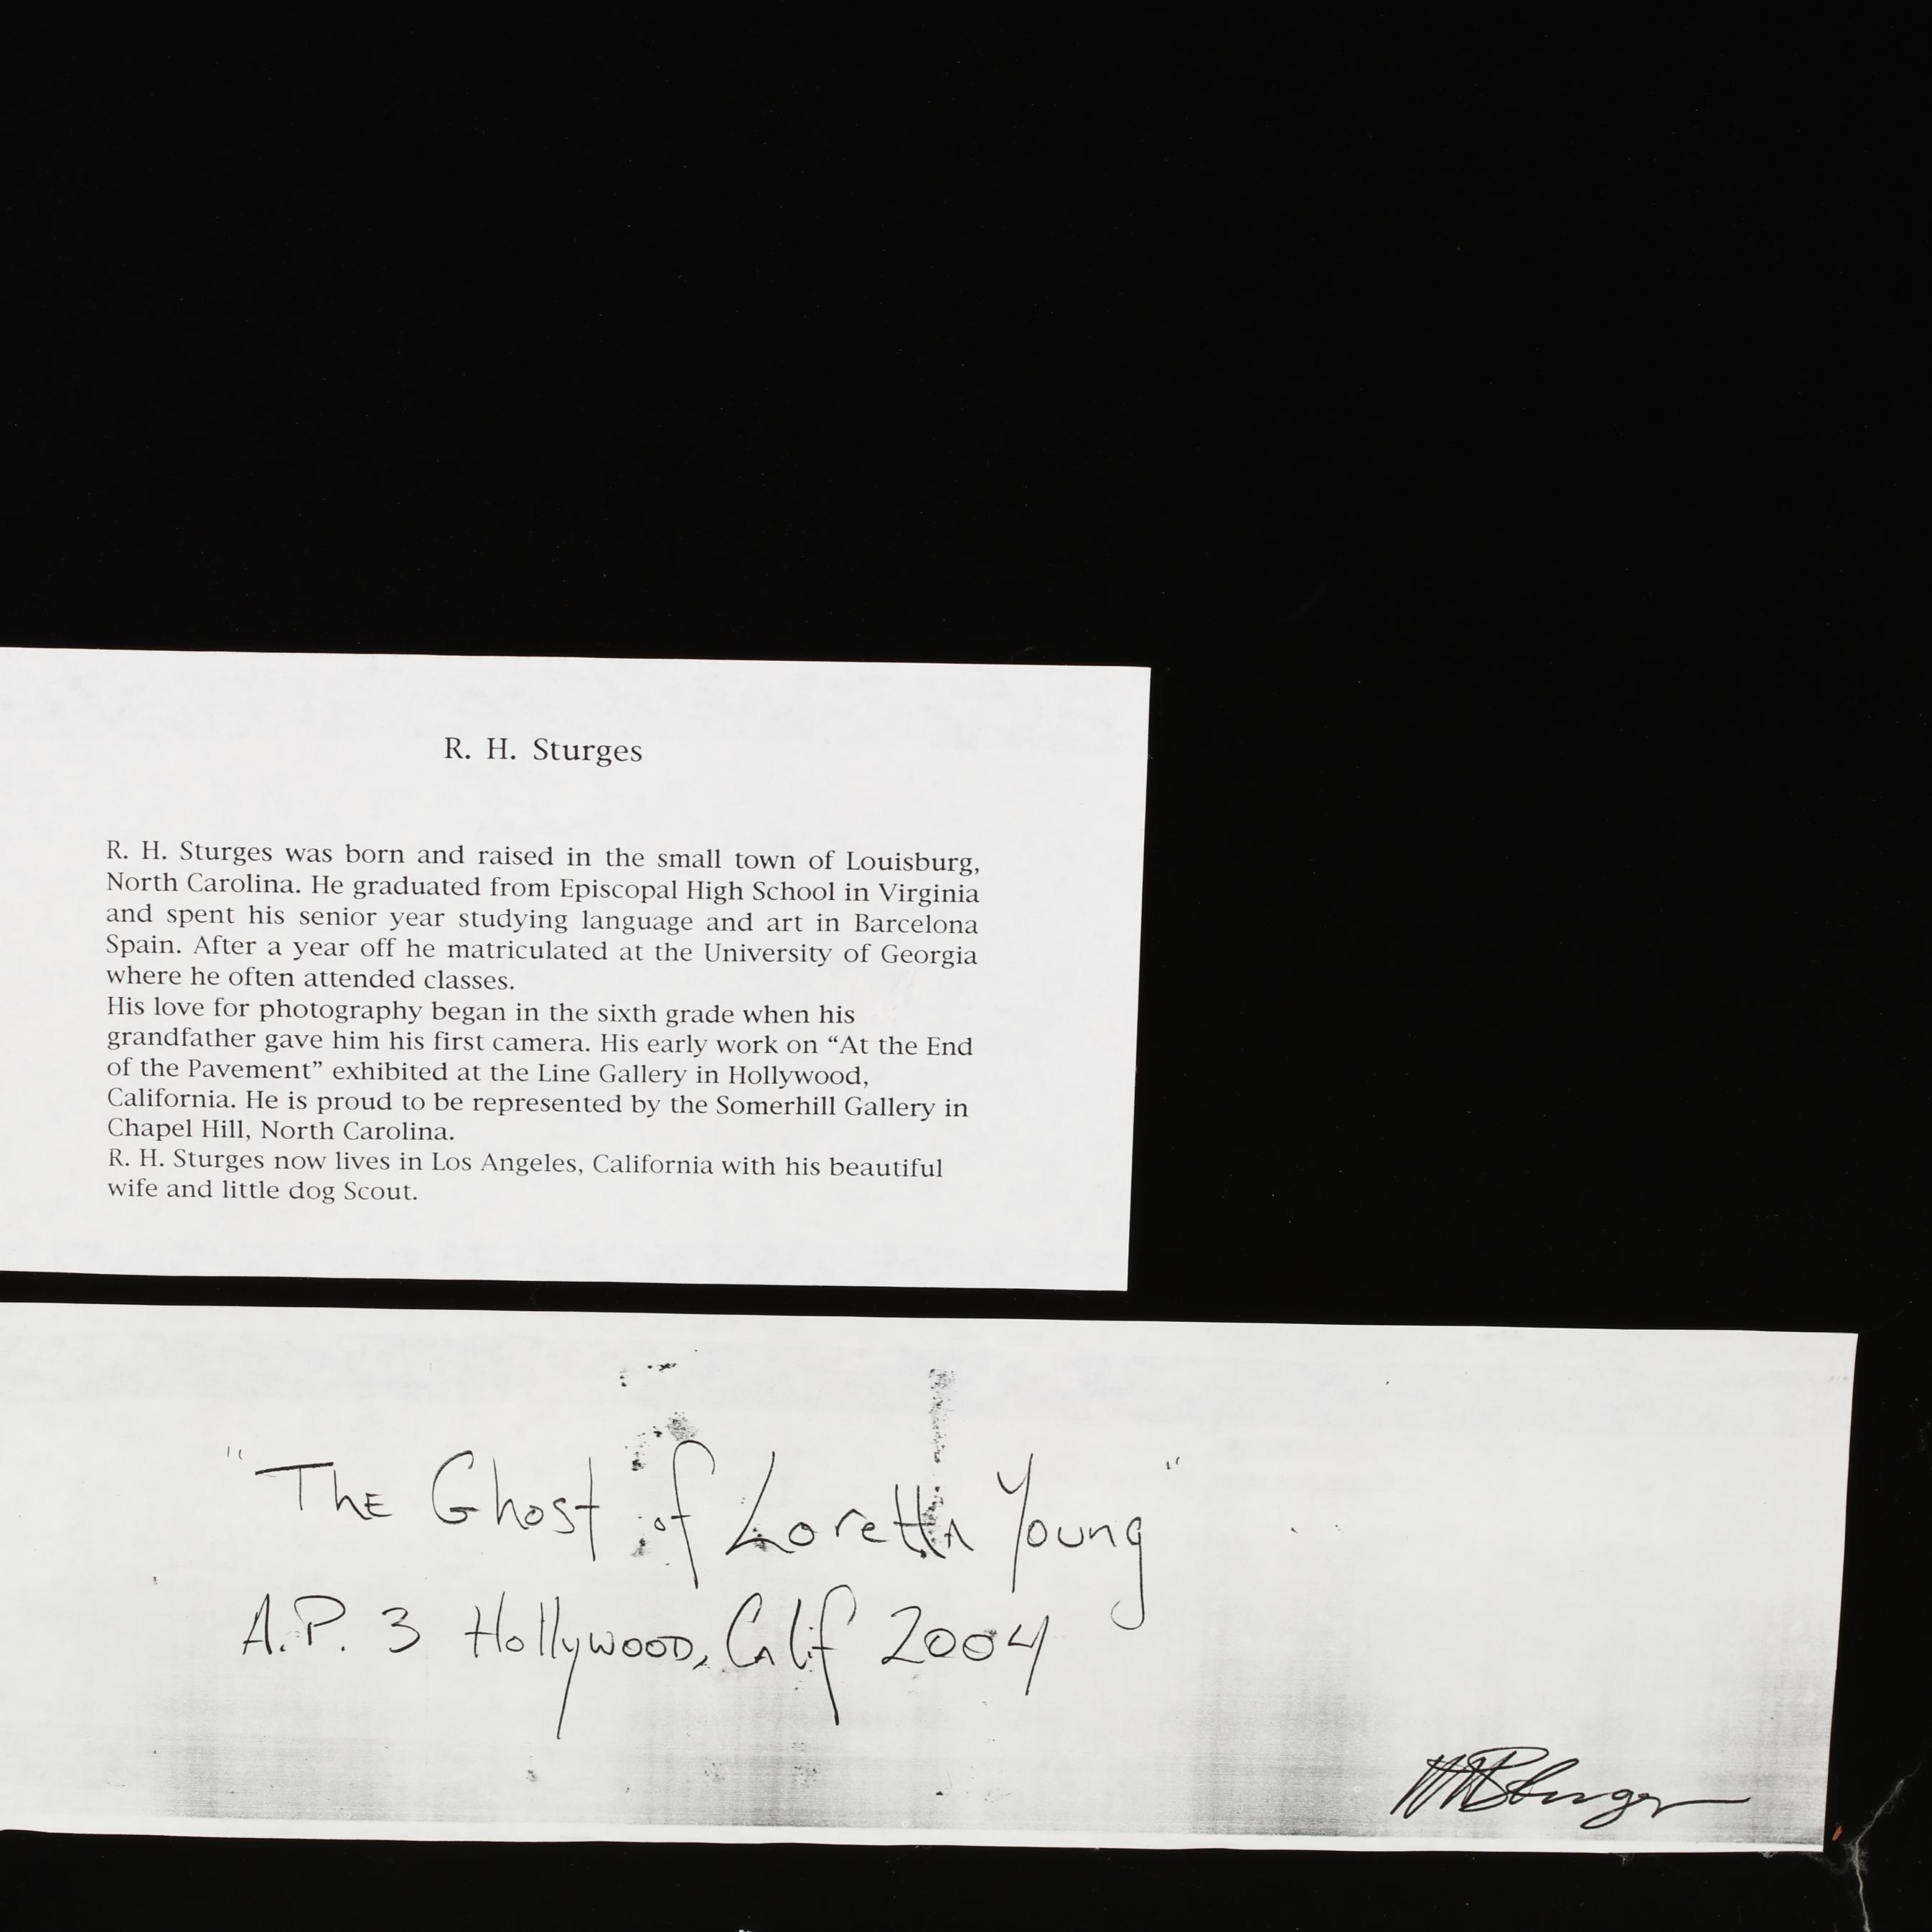 R. H. Sturges
R. H. Sturges was born and raised in the small town of Louisburg,
North Carolina. He graduated from Episcopal High School in Virginia
and spent his senior year studying language and art in Barcelona
Spain. After a year off he matriculated at the University of Georgia
where he often attended classes.
His love for photography began in the sixth grade when his
grandfather gave him his first camera. His early work on “At the End
of the Pavement” exhibited at the Line Gallery in Hollywood,
California. He is proud to be represented by the Somerhill Gallery in
Chapel Hill, North Carolina.
R. H. Sturges now lives in Los Angeles, California with his beautiful
wife and little dog Scout.
"The Ghost of Loretta Young"
A.P. 3 Hollywood, Calif 2004